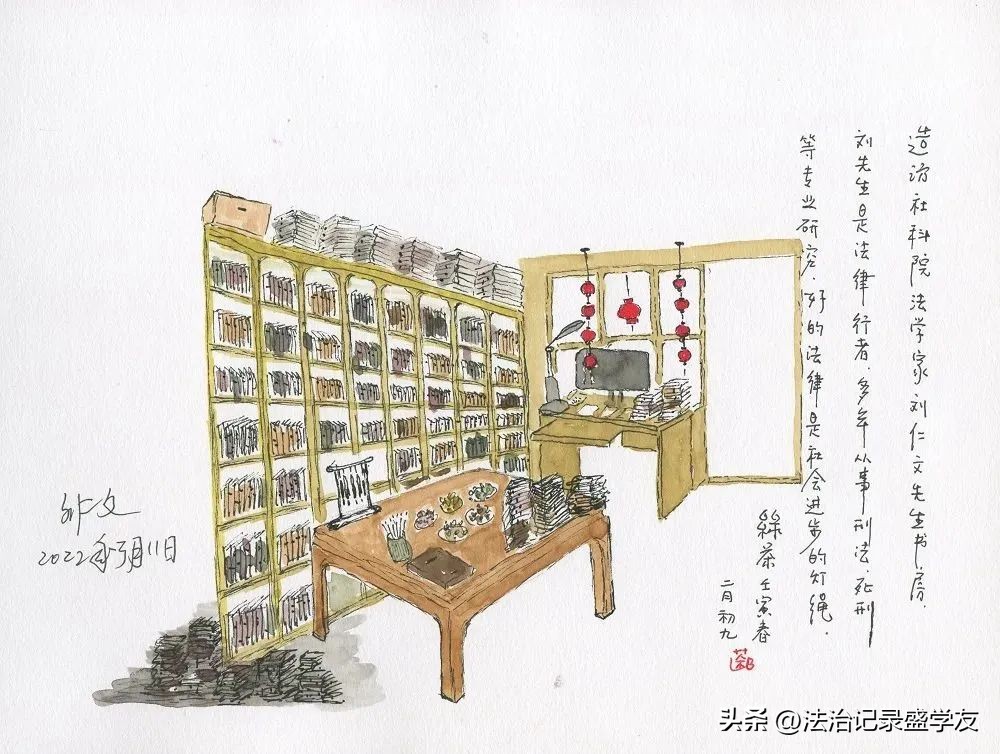 造访社科院法学家刘仁文先生书房.
刘先生是法律行者.多年从事刑法.死刑
等专业研究.好的法律是社会进步的灯绳.
絲茶壬寅春
二月初九
仁文
2022年3月11日
头条 @法治记录盛学友